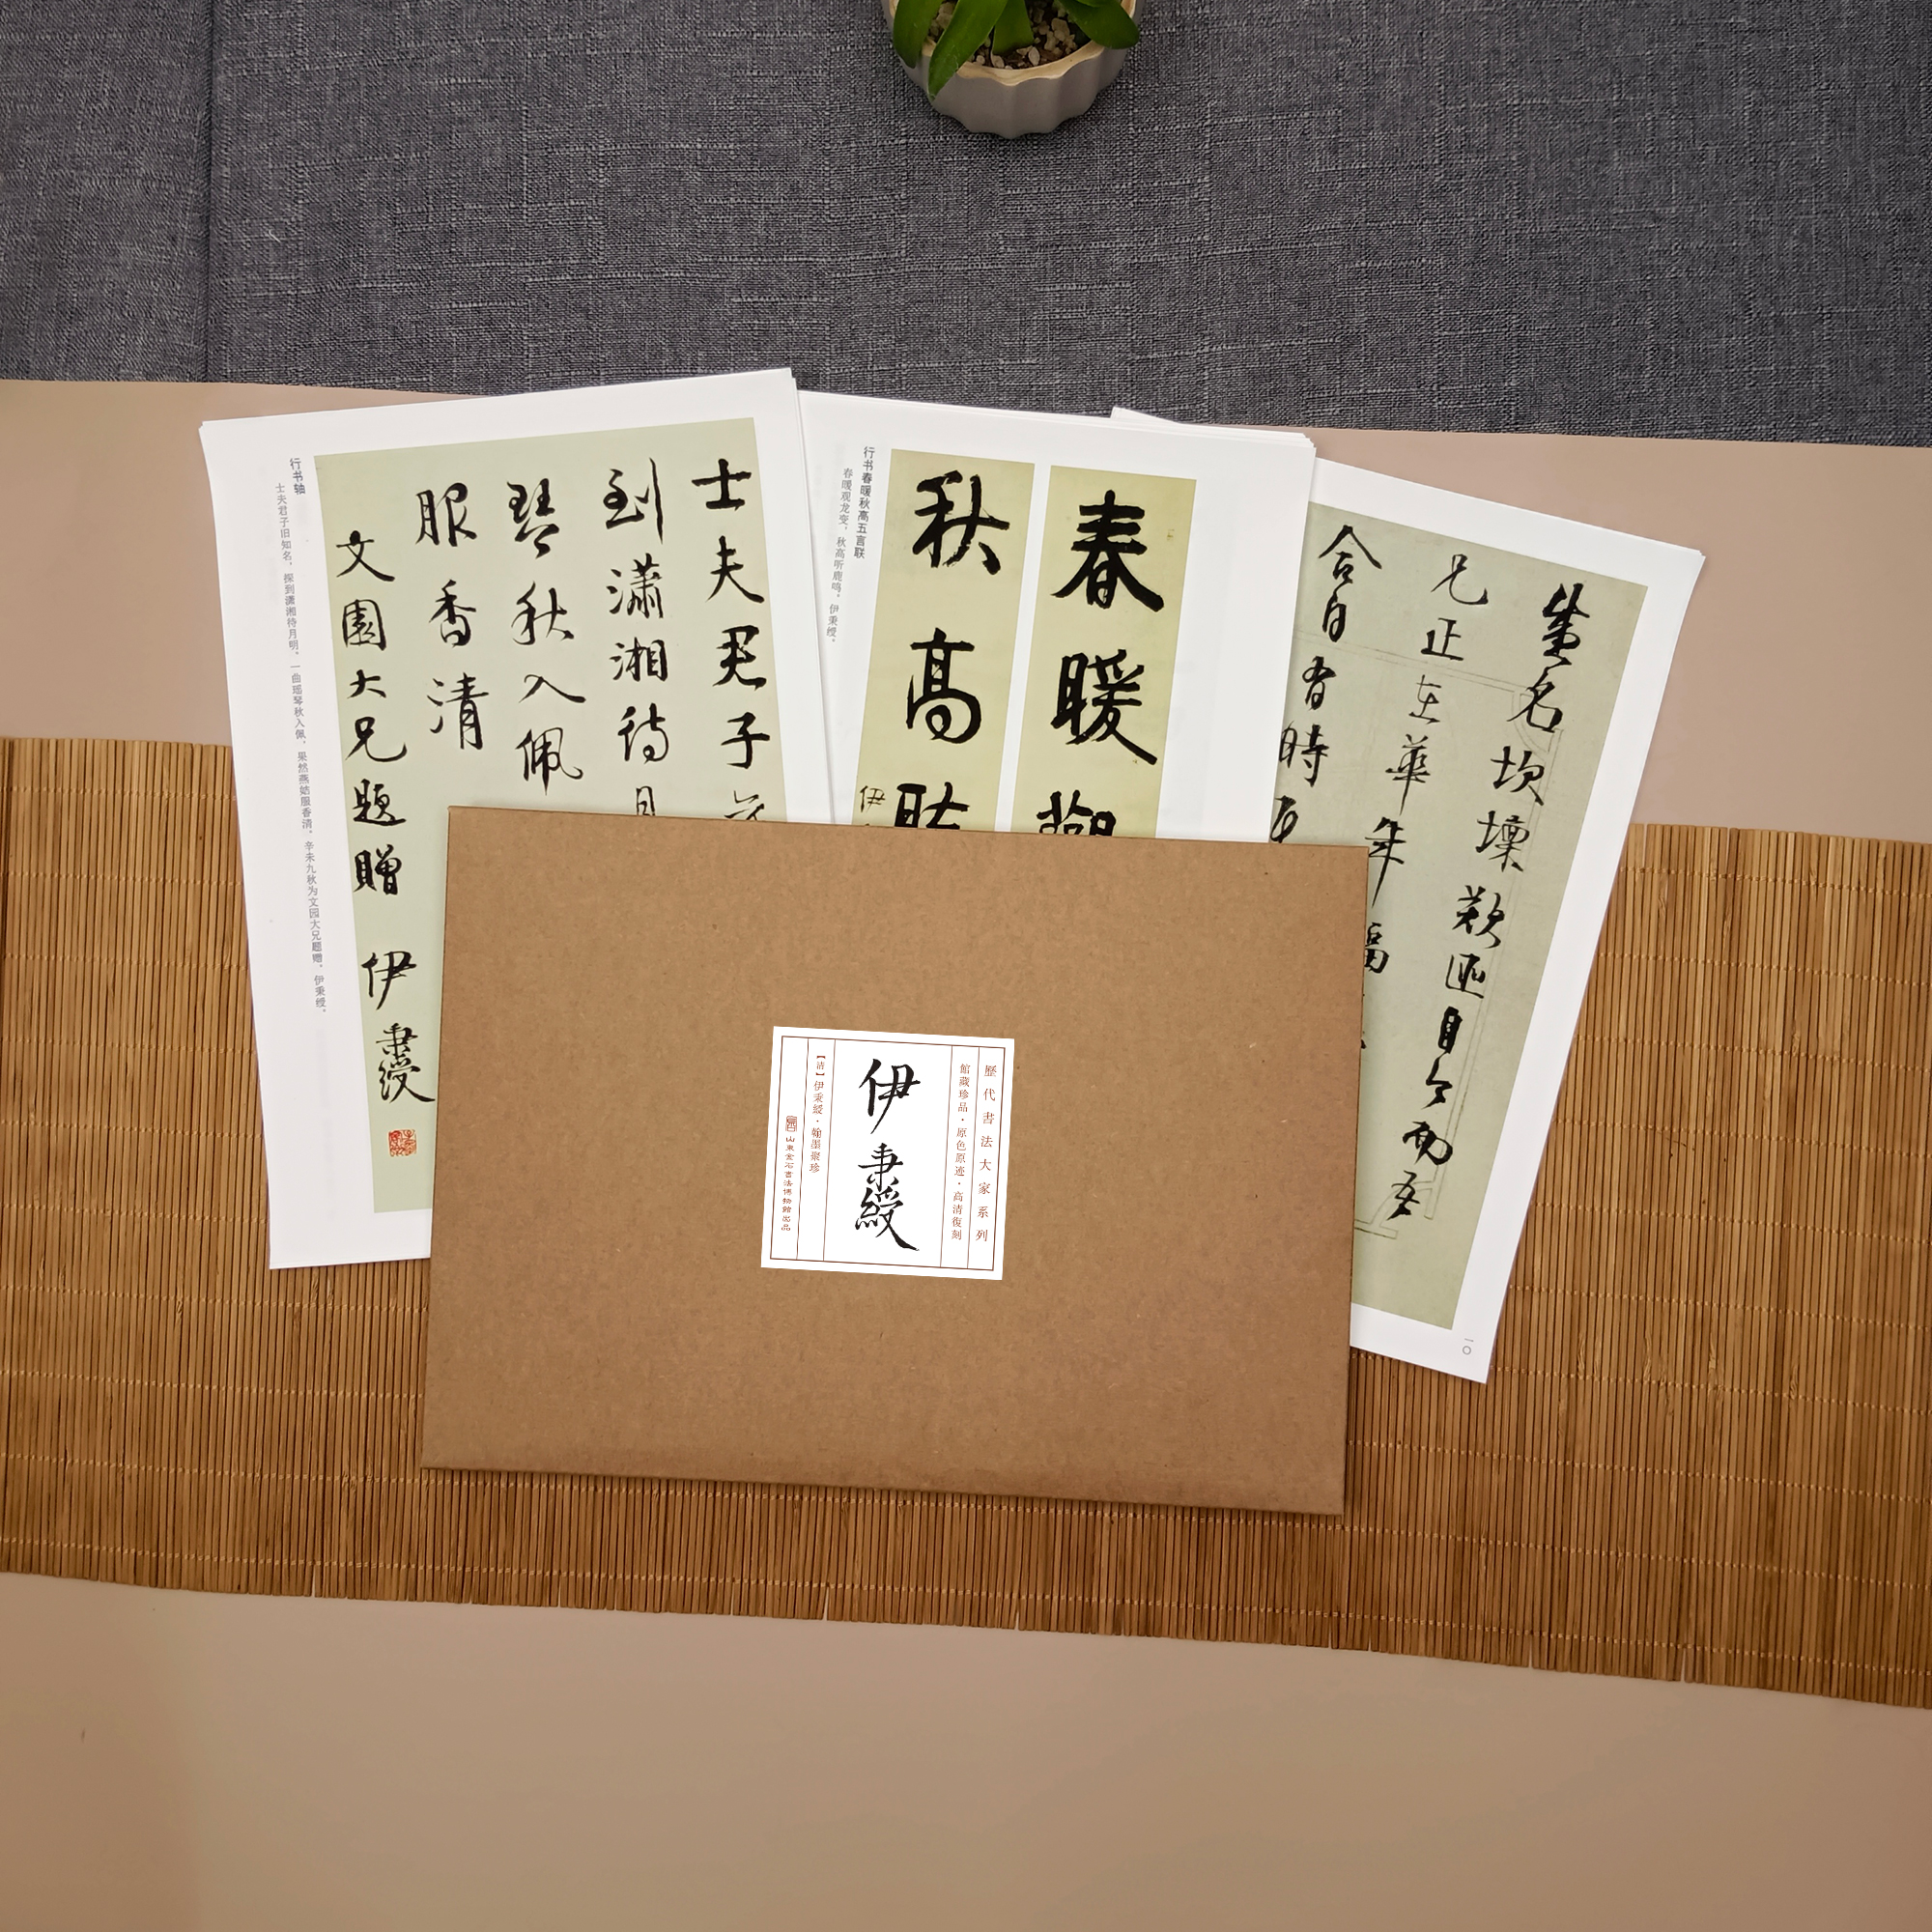 行书轴
士夫君子旧知名，探到潇湘待月明。一曲瑶琴秋入佩，果然燕姞服香清。辛未九秋为文园大兄题赠，伊秉绶。
士夫君子
到瀟湘待月
琴秋入佩
服香清
文園大兄題贈
伊秉綬
行书春暖秋高五言联
春暖观龙变，秋高听鹿鸣。伊秉绶。
春暖觀
秋高聽
伊
名坎壈
兄正在華年
合自有時
一〇
歷代書法大家系列
館藏珍品·原色原迹·高清復刻
伊秉綬
【清】伊秉綬·翰墨聚珍
山東金石書法博物館出品